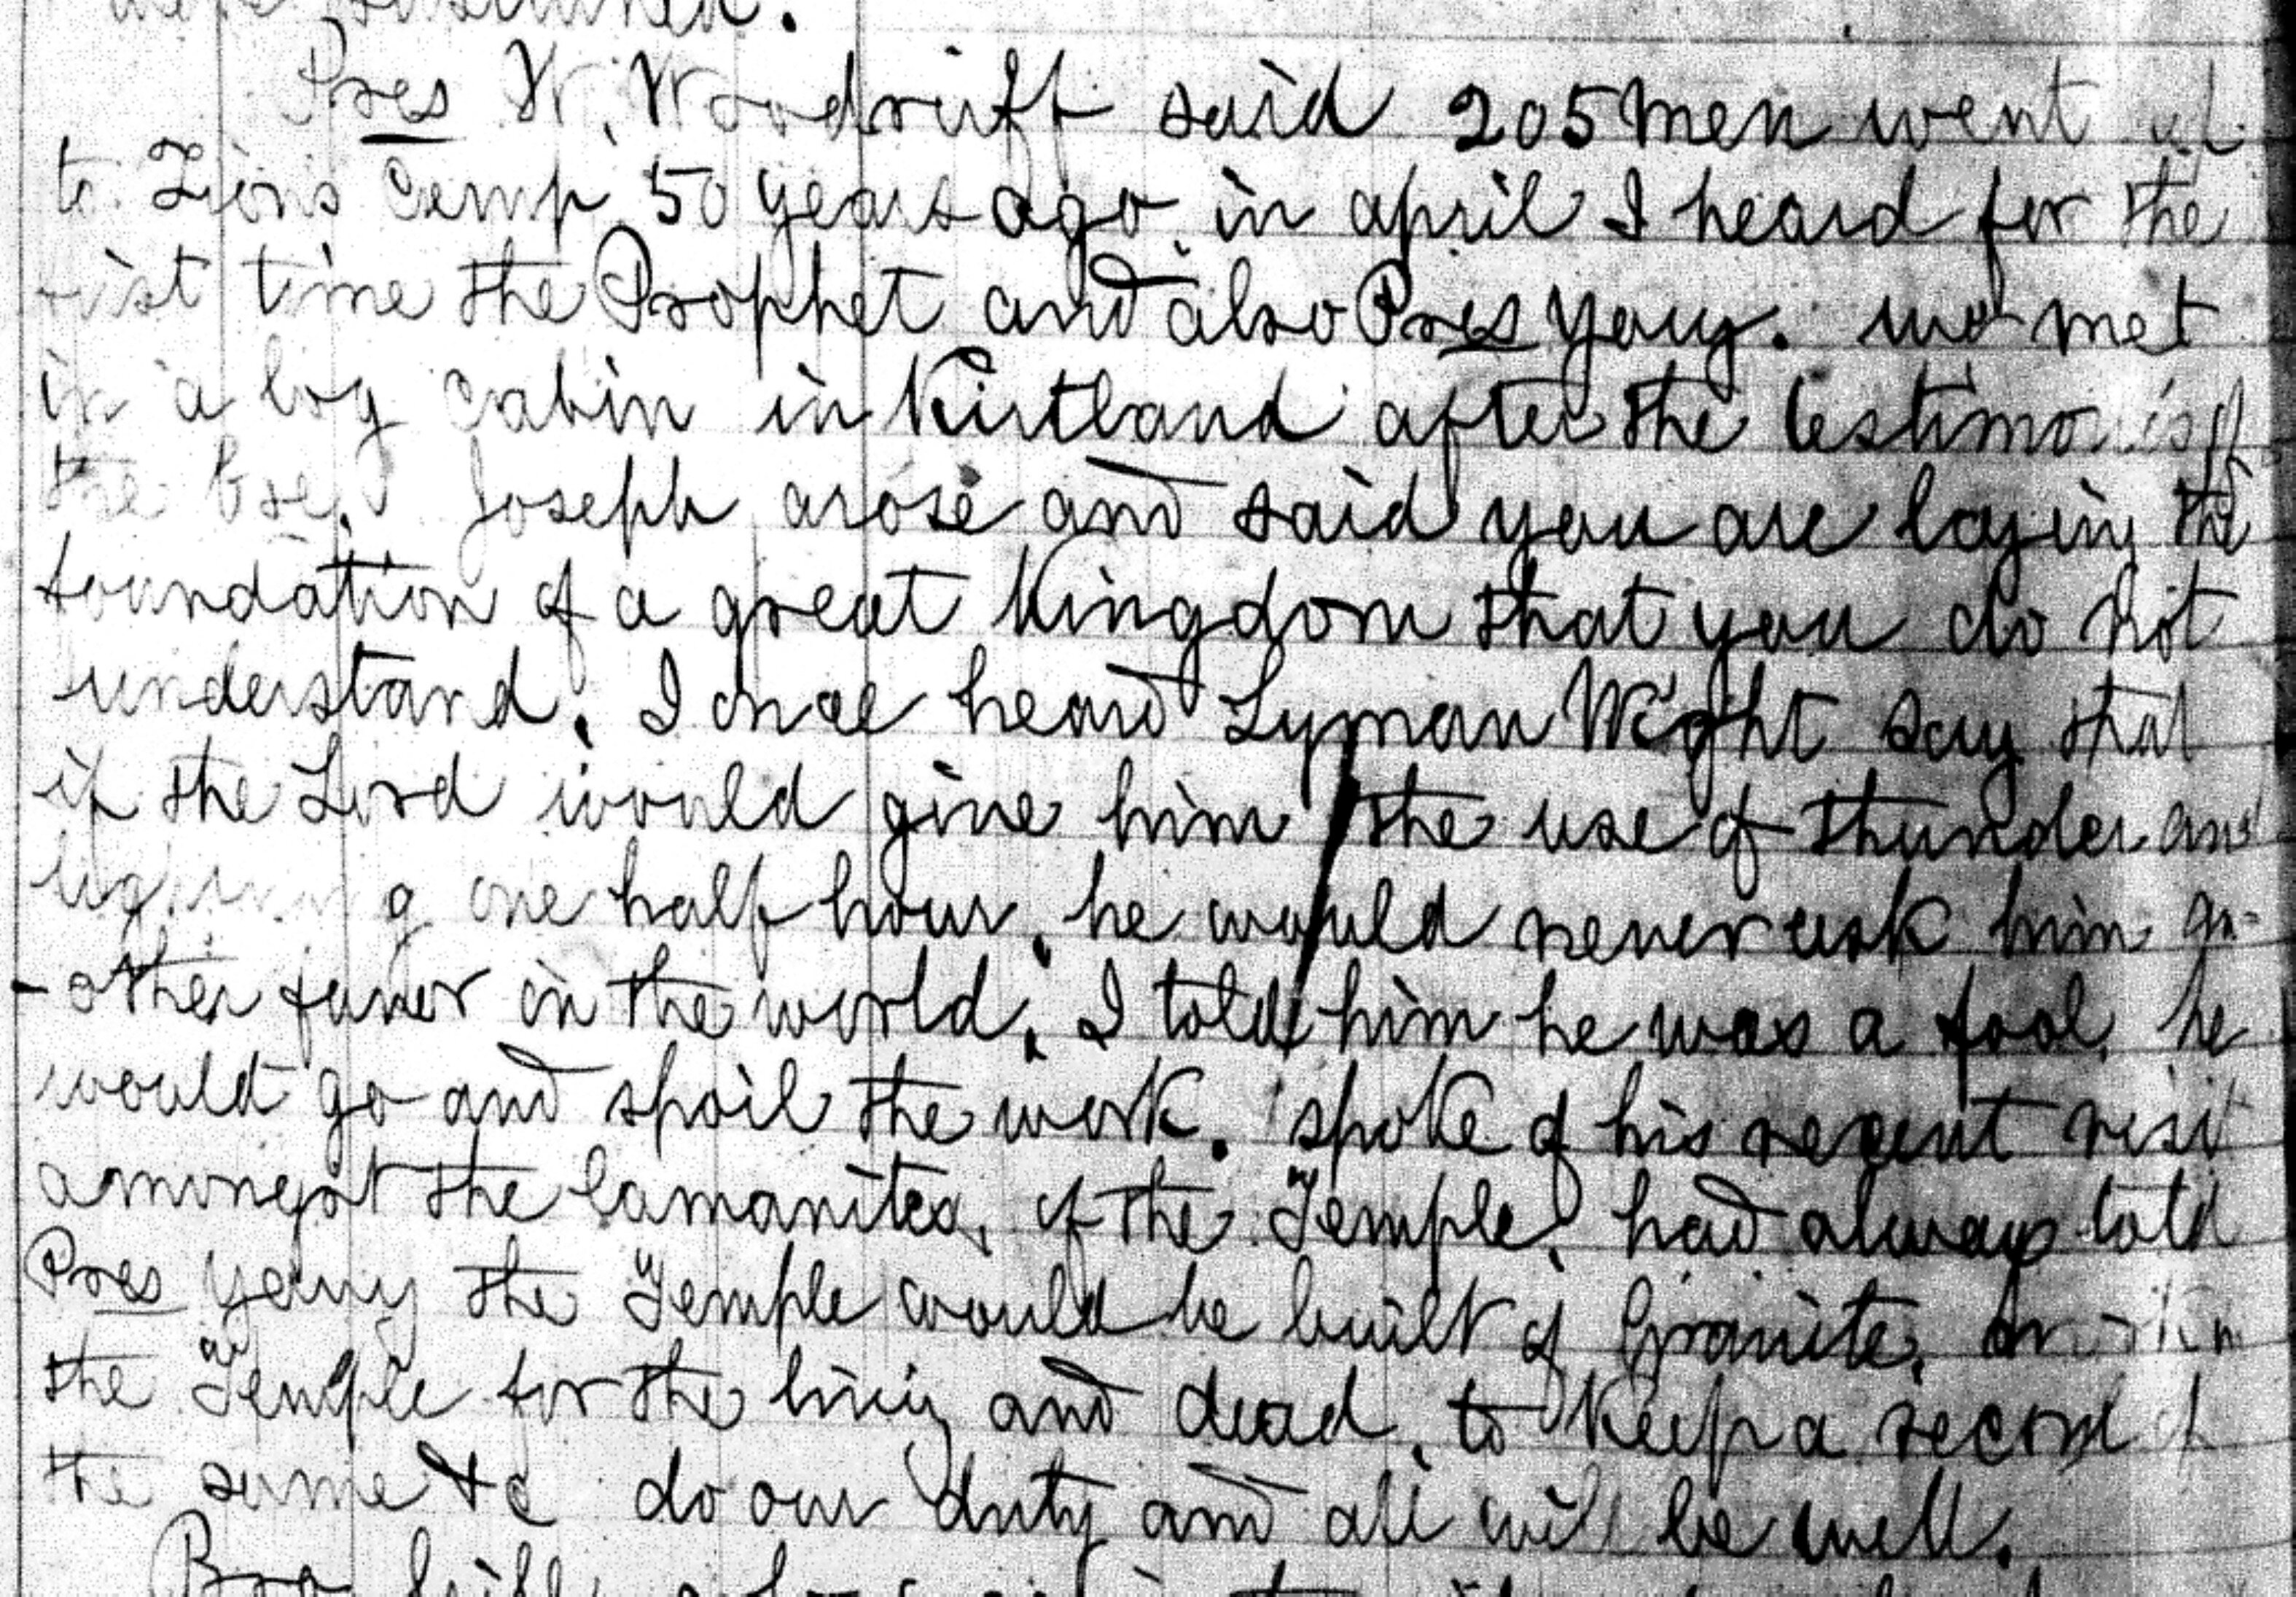 Pres W. Woodruff said 205 men went up
to Zions Camp 50 years ago. in april I heard for the
first time the Prophet and also Pres Young. we met
in a log cabin in Kirtland after the testimonies of
the bre. Joseph arose and said you are laying the
foundation of a great Kingdom that you do not
understand. I once heard Lyman Wight say that
if the Lord would give him the use of thunder and
lightning one half hour, he would never ask him an-
-other favor in the world. I told him he was a fool, he
would go and spoil the work. spoke of his recent visit
amongst the lamanites, of the Temple, had always told
Pres Young the Temple would be built of Granite. work in
the Temple for the living and dead. to Keep a record of
the same &c do our duty and all will be well.
Bro